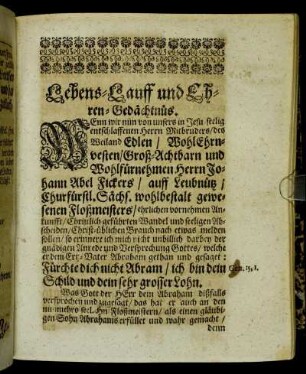 Lebens-Lauff und Eh-
ren-Gedächtnüs.
WEnn wir nun von unsers in Jesu seelig
entschlaffenen Herrn Mitbruders / des
Weiland Edlen / WohlEhrn-
vesten / Groß-Achtbarn und
Wohlfürnehmen Herrn Jo-
hann Abel Fickers / auff Leubnitz /
Churfürstl. Sächs. wohlbestalt gewe-
senen Floßmeisters / ehrlichen vornehmen An-
kunfft / Christlich geführten Wandel und seeligen Ab-
scheiden / Christ-üblichen Brauch nach etwas melden
sollen / so erinnere ich mich nicht unbillich darbey der
gnädigen Anrede und Versprechung Gottes / welche
er dem Ertz-Vater Abraham gethan und gesagt:
Fürchte dich nicht Abram / ich bin dein
Schild und dein sehr grosser Lohn.
Was Gott der HErr dem Abraham dißfalls
versprochen und zugesagt / das hat er auch an den
nunmehro seel. Hn. Floßmeistern / als einen gläubi-
gen Sohn Abrahams erfüllet und wahr gemacht /
denn